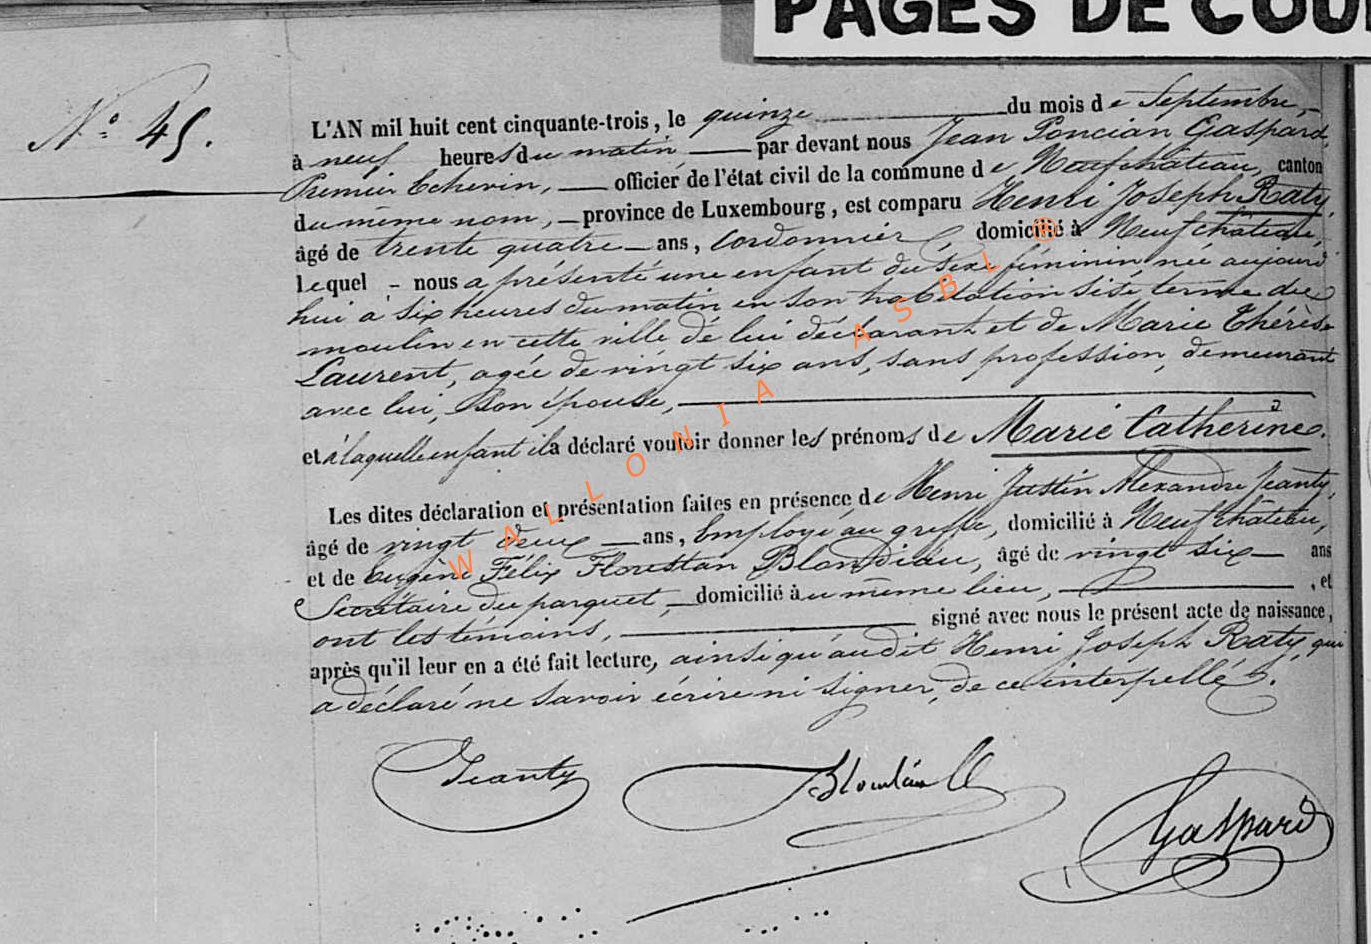 PAGES DE COU
N° 45.
L'AN mil huit cent cinquante-trois, le quinze du mois de Septembre,
à neuf heures du matin par devant nous Jean Poncian Gaspard,
Premier Echevin, officier de l'état civil de la commune de Neufchâteau, canton
du même nom, province de Luxembourg, est comparu Henri Joseph Raty,
âgé de trente quatre ans, Cordonnier, domicilié à Neufchâteau,
lequel nous a présenté une enfant du sexe féminin née aujourd'
hui à six heures du matin en son habitation sise terme du
moulin en cette ville de lui déclarant et de Marie Thérèse
Laurent, agée de vingt six ans, sans profession, demeurant
avec lui, son épouse,
et à laquelle enfant il a déclaré vouloir donner les prénoms de Marie Catherine.
Les dites déclaration et présentation faites en présence de Henri Justin Alexandre Jeanty,
âgé de vingt deux ans, Employé au greffe, domicilié à Neufchâteau,
et de Eugène Félix Florestan Blondiau, âgé de vingt six ans
Secrétaire du parquet, domicilié au même lieu, , et
ont les témoins, signé avec nous le présent acte de naissance,
après qu'il leur en a été fait lecture, ainsi qu'audit Henri Joseph Raty, qui
a déclaré ne savoir écrire ni signer, de ce interpellé.
Jeanty Blondiau Gaspard
WALLONIA ASBL ®